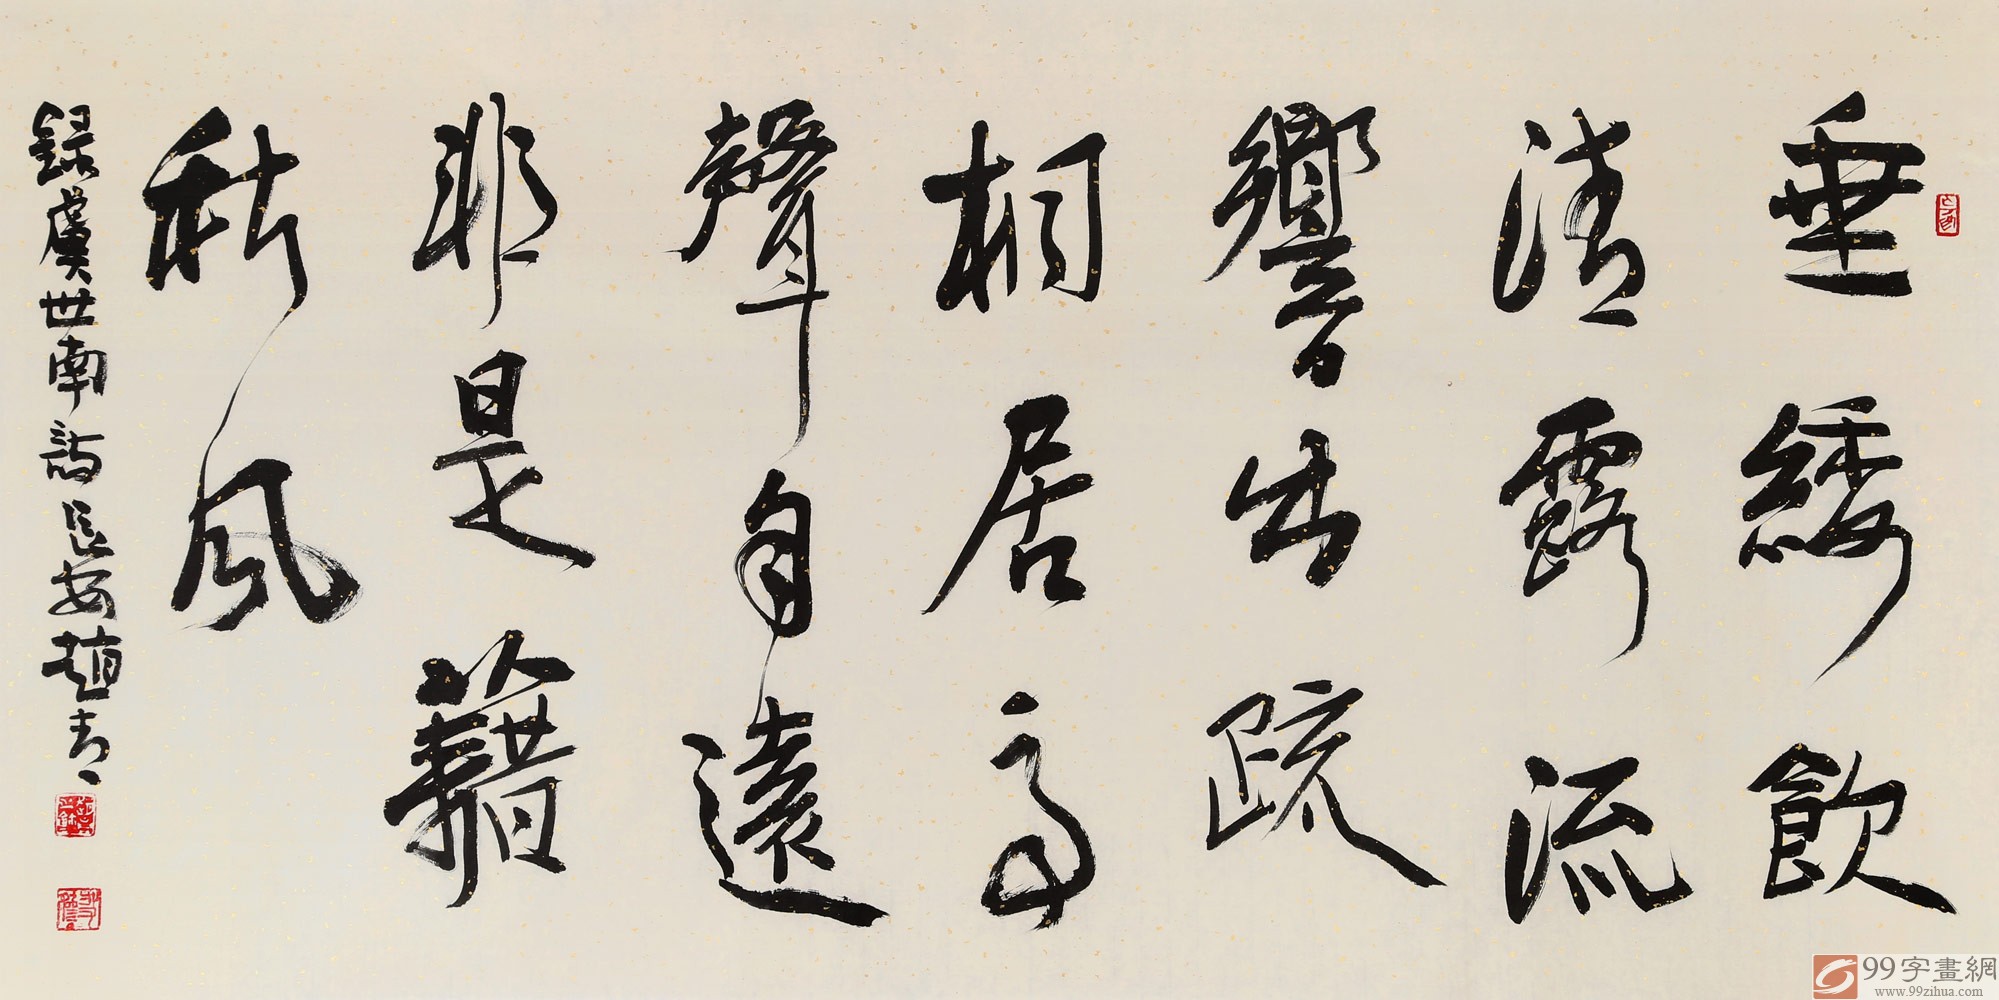 垂緌飲
清露流
響出疏
桐居高
聲自遠
非是籍
秋風
錄虞世南詩長安趙青
99字畫網
www.99zihua.com